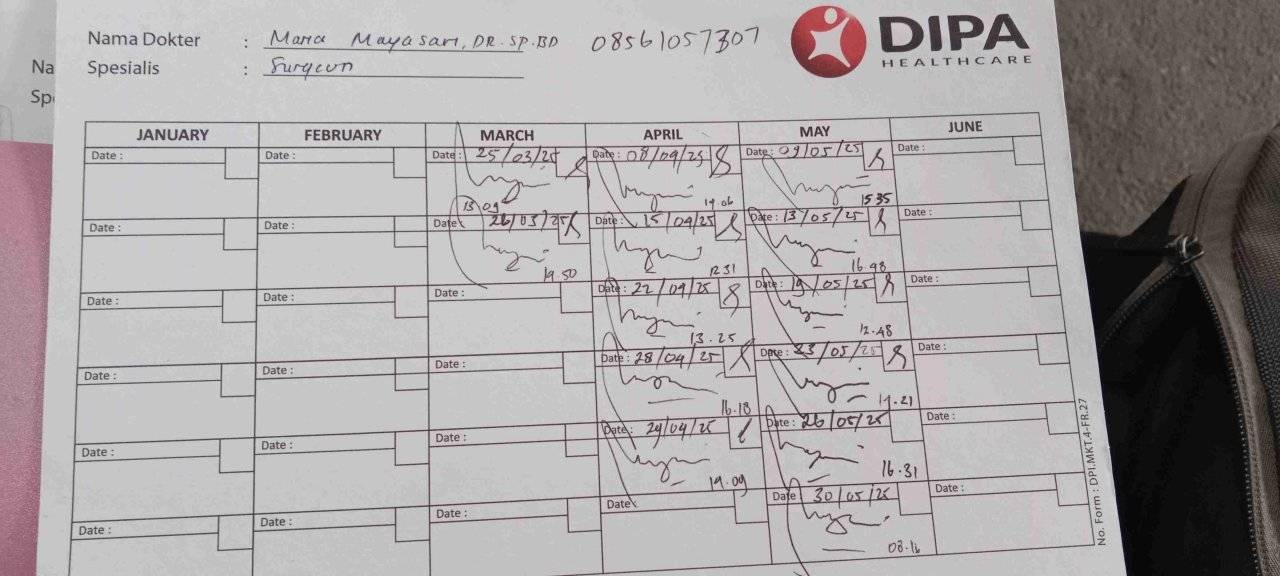 Nama Dokter : Maria Mayasari, DR. SP. BD 08561057307
DIPA
HEALTHCARE
Na
Spesialis : Surgeon
Sp
JANUARY FEBRUARY MARCH APRIL MAY JUNE
Date : Date : Date : 25/03/25 Date : 08/04/25 Date : 09/05/25 Date :
13 09 19.06 15 35
Date : Date : Date : 26/03/25 Date : 15/04/25 Date : 13/05/25 Date :
19.50 12 31 16.48
Date : Date : Date : Date : 22/04/25 Date : 19/05/25 Date :
13.25 12.48
Date : Date : Date : Date : 28/04/25 Date : 23/05/25 Date :
16.18 19.21
Date : Date : Date : Date : 29/04/25 Date : 26/05/25 Date :
19.09 16.31
Date : Date : Date : Date : Date : 30/05/25 Date :
08.16
No. Form : DPI.MKT.4-FR.27